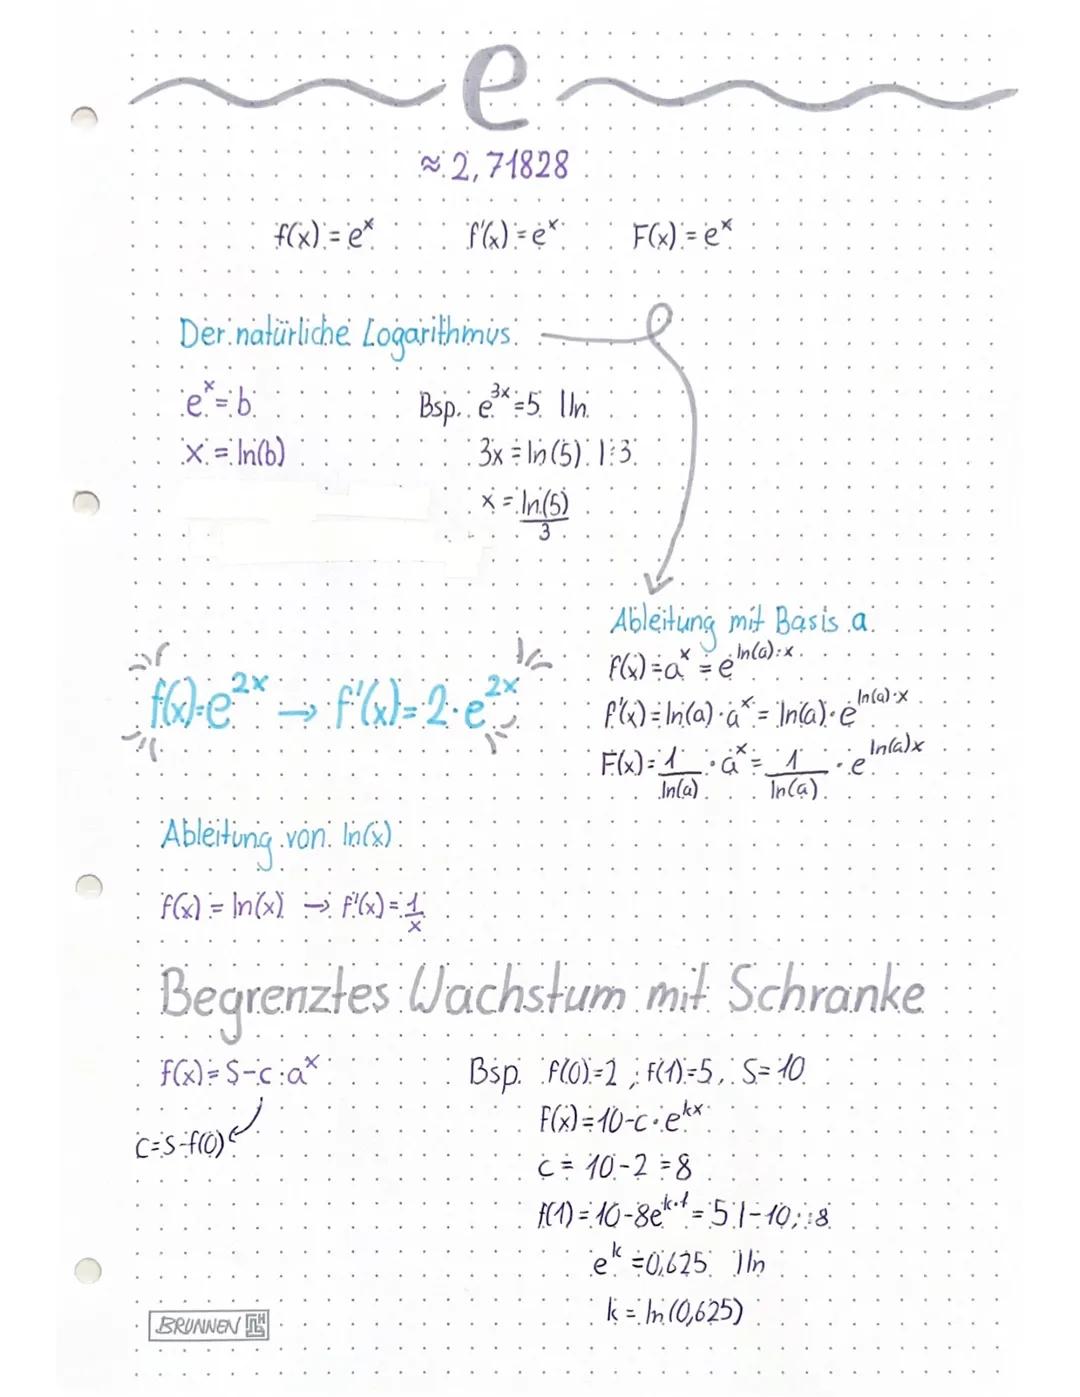 e
≈ 2,71828
f(x) = e^x f'(x) = e^x F(x) = e^x
Der natürliche Logarithmus
e^x = b
x = ln(b)
Bsp. e^{3x} = 5 | ln
3x = ln(5) | :3
x = ln(5)/3
Ableitung mit Basis a
f(x) = a^x = e^{ln(a)·x}
f'(x) = ln(a) · a^x = ln(a) · e^{ln(a)·x}
F(x) = 1/ln(a) · a^x = 1/ln(a) · e^{ln(a)x}
f(x) = e^{2x} → f'(x) = 2 · e^{2x}
Ableitung von ln(x)
f(x) = ln(x) → f'(x) = 1/x
Begrenztes Wachstum mit Schranke
f(x) = S - c · a^x
c = S - f(0)
Bsp. f(0) = 2 ; f(1) = 5, S = 10
f(x) = 10 - c · e^{kx}
c = 10 - 2 = 8
f(1) = 10 - 8e^{k·1} = 5 | -10; :8
e^k = 0,625 | ln
k = ln(0,625)
BRUNNEN